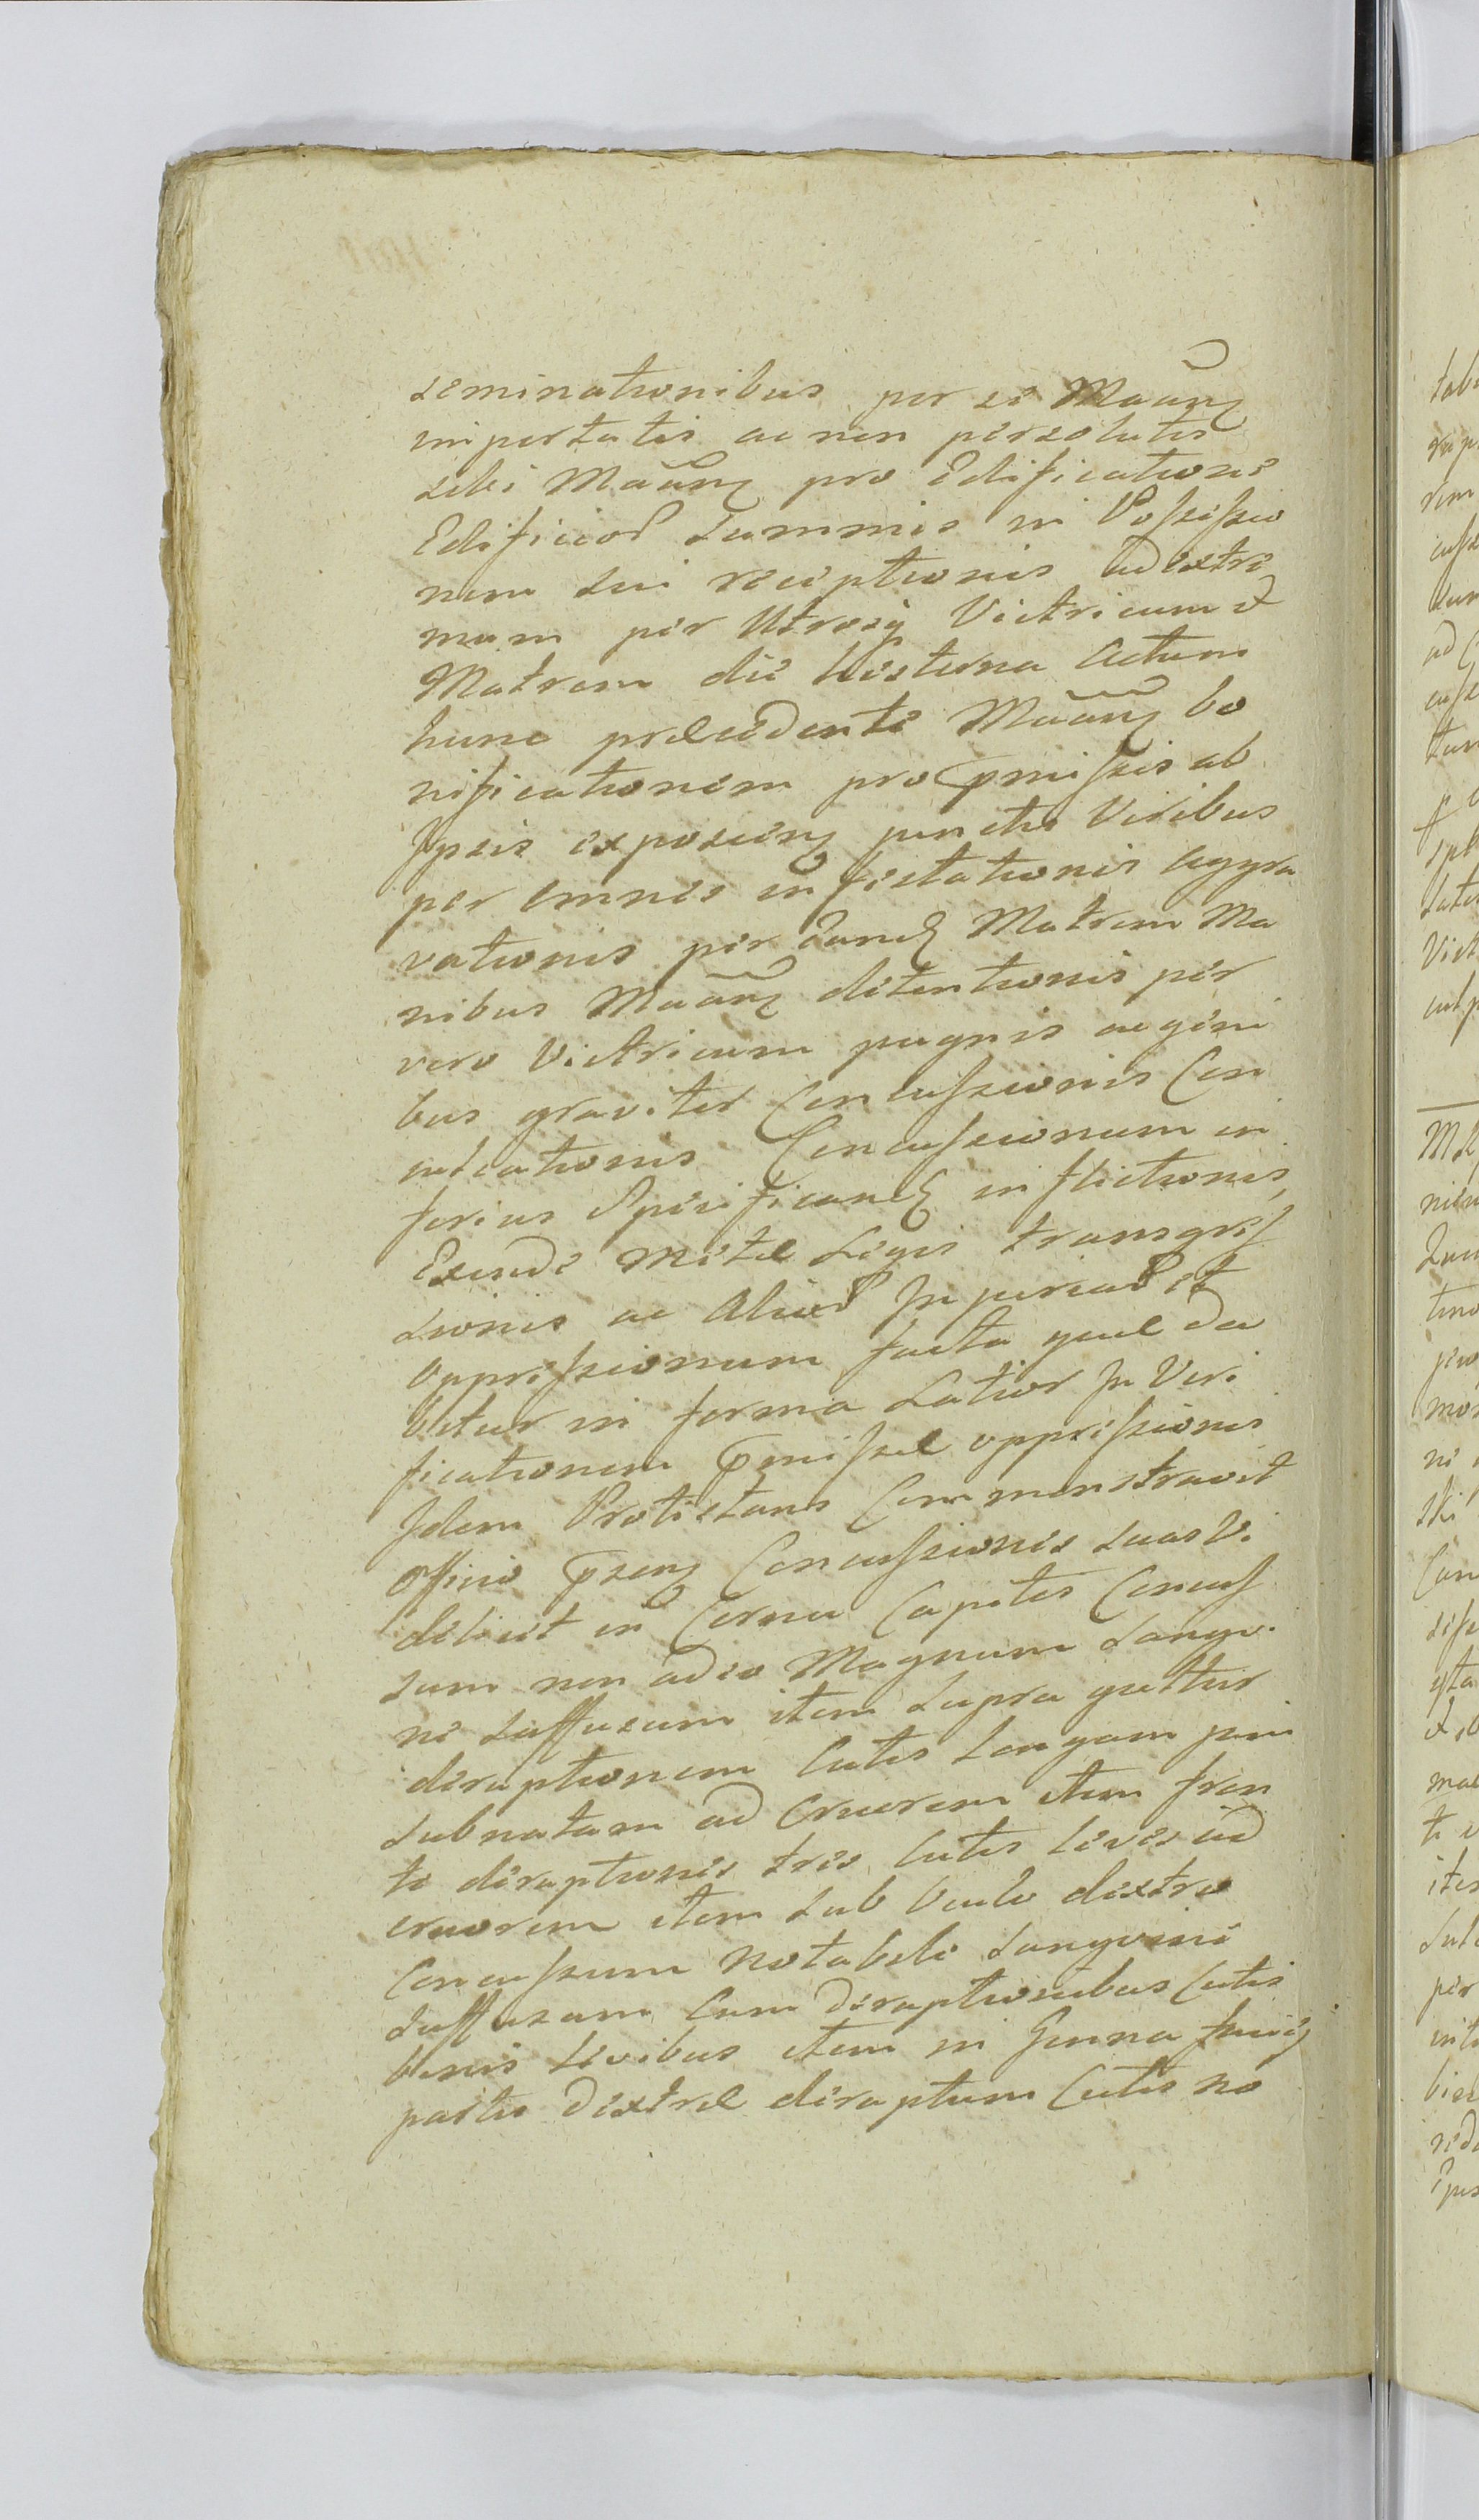 seminationibus per se Maãnꝫ
importatis ac non persolutis
sibi Maãnꝫ pro Edificatione
Edificioꝝ summis in Possessio
nem sui receptionis ad extre
mum per Utrosqꝫ Victricum et
Matrem die hesterna Actum
hunc præcedente Maãnꝫ bo
nificationem pro p̄missis ab
Ipsis exposcenꝫ junctis Viribus
per omnes infestationis Aggra
vationis per eandꝫ Matrem Ma
nibus Maãnꝫ detentionis per
vero Victricum pugnis ac geni
bus graviter Concussionis Con
culcationis Concussionum in
ferius Specificandꝫ inflictionis,
Exinde Metæ Legis transgres
sionis ac Alioꝝ Injuriaꝝ et
oppressionum facta quæ da
bitur in forma Latior In Veri
ficationem p̄missæ oppressionis
Idem Protestans Commonstravit
Officio p̄senꝫ Concussionis suas Vi
delicet in Cornu Capitis Concus
sum non adeo Magnum Sangvi
ne suffusum item supra guttur
diruptionem Cutis Longam
subnatam ad Cruorem item fron
te diruptionis tres Cutis Leves ad
cruorem item sub Oculo dextro
Concussum Notabile Sangvine
suffusum Cum Diruptionibus Cutis
binis Levibus item in Genna
partis Dextræ diruptum Cutis No